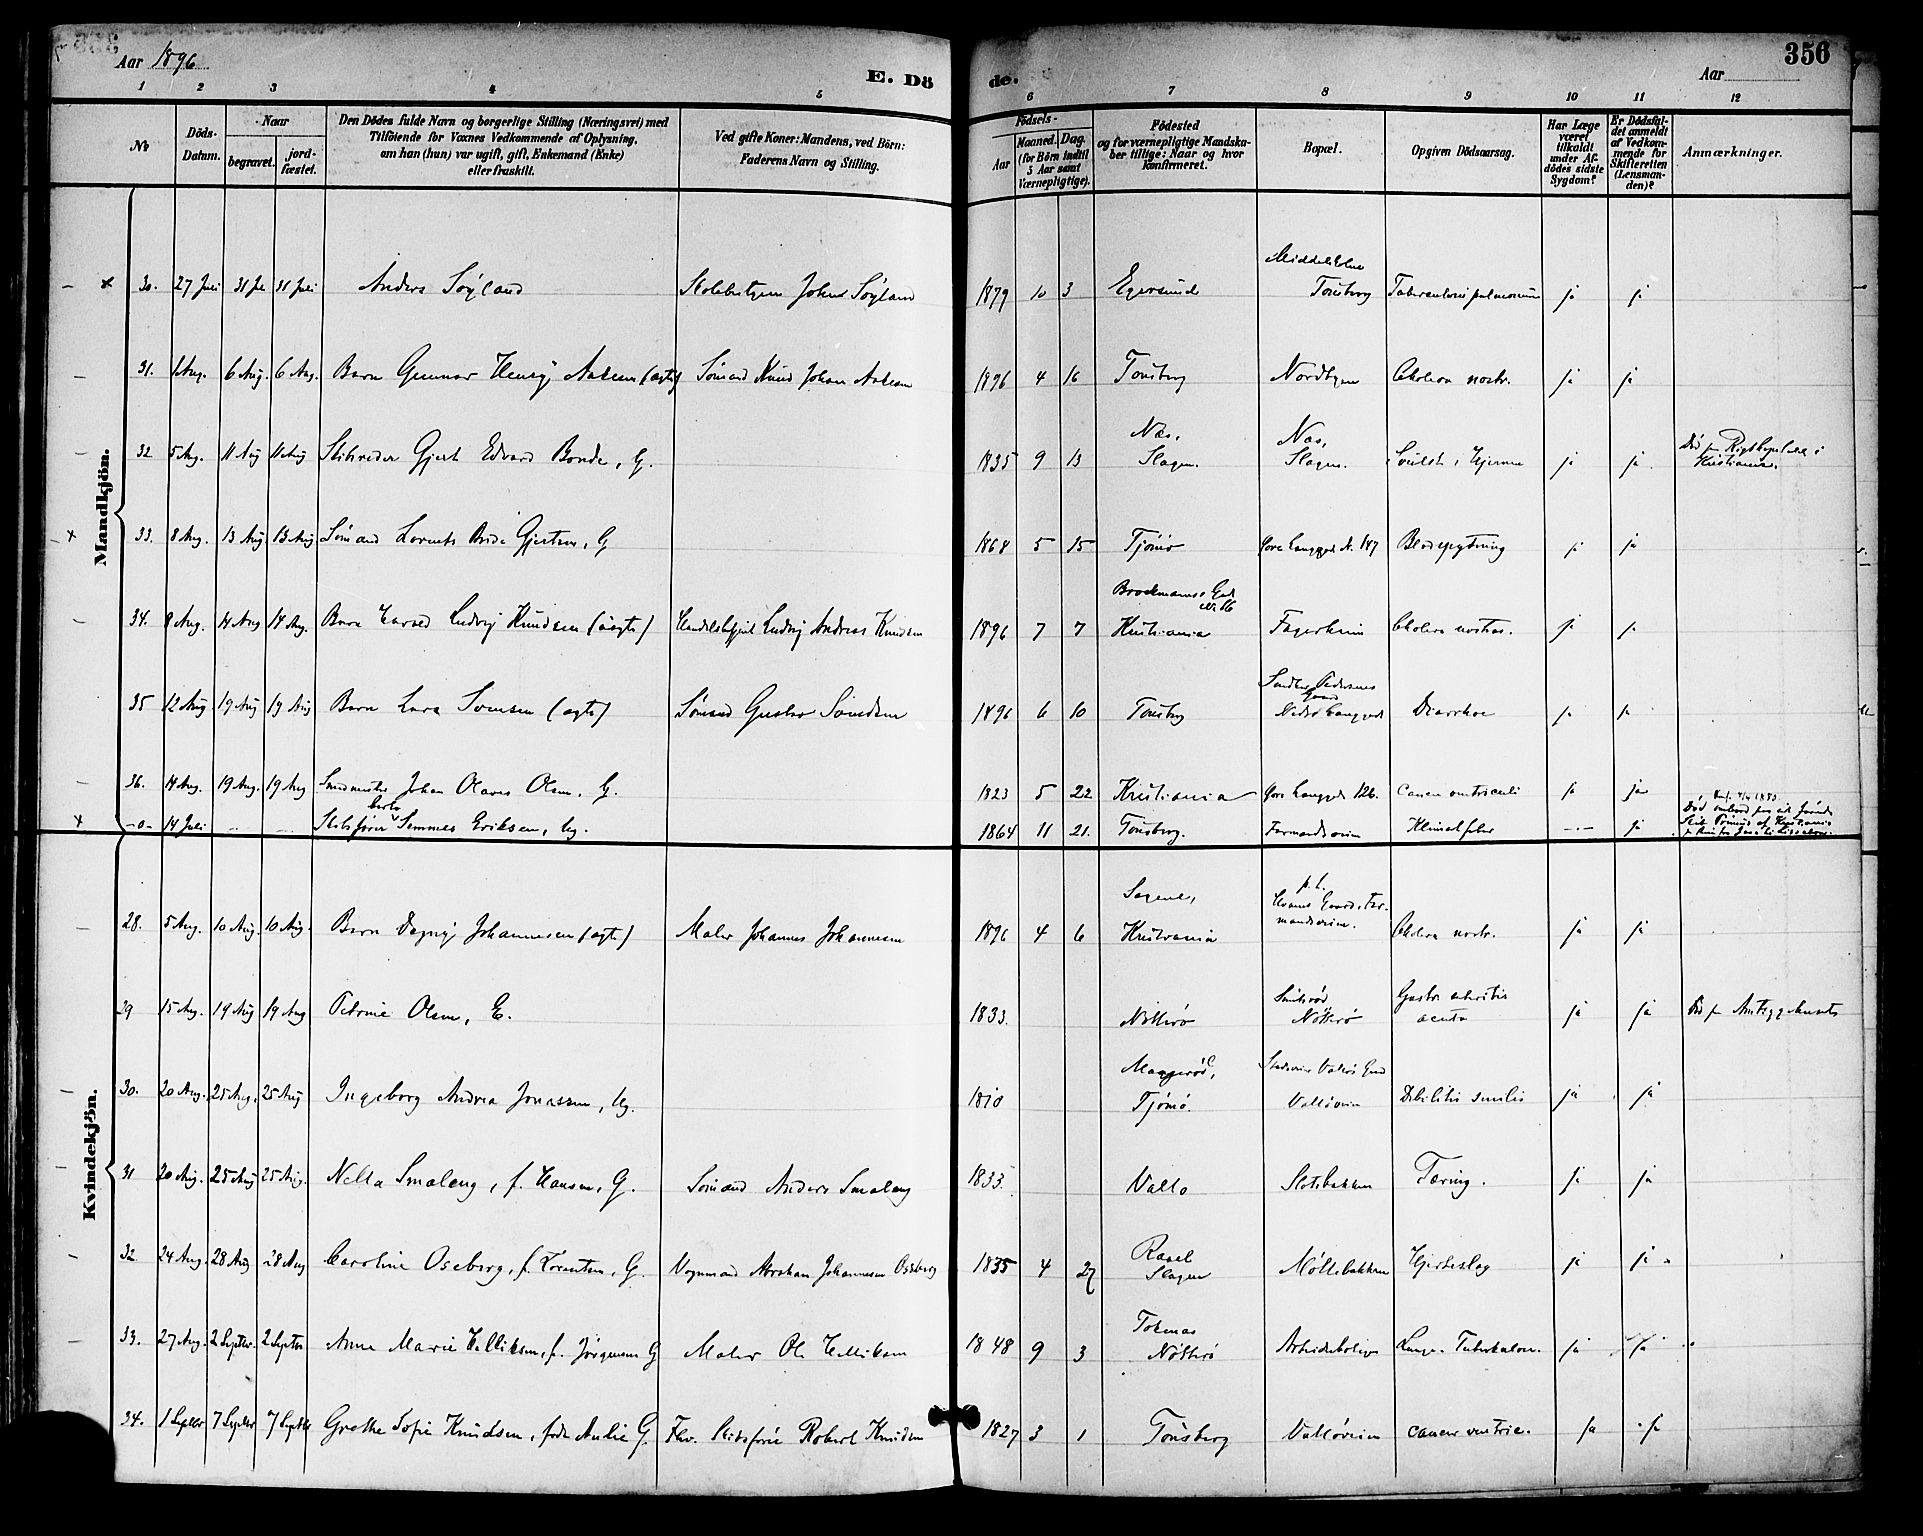 Aar 1896
E. Dö
de.
Aar
356
1 2 3 4 5 6 7 8 9 10 11 12
No
Döds-Datum.
Naar
begravet.
jord-fæstet.
Den Dödes fulde Navn og borgerlige Stilling (Næringsvei) med
Tilföiende for Voxnes Vedkommende af Oplysning,
om han (hun) var ugift, gift, Enkemand (Enke)
eller fraskilt.
Ved gifte Koner: Mandens, ved Börn:
Faderens Navn og Stilling.
Födsels-
Aar
Maaned. Dag.
(for Börn indtil
5 Aar samt
Værnepligtige).
Födested
og for værnepligtige Mandska-
ber tillige: Naar og hvor
konfirmeret.
Bopæl.
Opgiven Dödsaarsag.
Har Læge
været
tilkaldt
under Af-
dödes sidste
Sygdom?
Er Dödsfal-
det anmeldt
af Vedkom-
mende for
Skifteretten
(Lensman-
den)?
Anmærkninger.
Mandkjön.
30. 27 Juli 31 Ju 31 Juli Anders Søyland Johns Søyland 1879 10 3 Egersund Tønsberg Tuberculosis pulmonum ja ja
31. 1 Aug. 6 Aug. 6 Aug. Barn Gunnar Henrij Aakesen (ægte) Sømand Knud Johan Aakesen 1896 4 16 Tønsberg Nordbyen Cholera nostr. ja ja
32 5 Aug. 11 Aug 11 Aug Skibsreder Gjert Edvard Bonde, G. 1835 9 13 Næs, Slagen. Næs, Slagen. Svulst i Hjernen ja ja Død på Rigshospitalet i Kristiania.
33. 8 Aug. 13 Aug 13 Aug Sømand Lorents Gjertsen, G 1868 5 15 Tjømø Øvre Langgd. N. 147 Blodspytning ja ja
34. 8 Aug. 14 Aug 14 Aug. Barn Harald Ludvig Knudsen (ægte) Ludvig Andreas Knudsen 1896 7 7 Kristiania Fagerheim Cholera nostras. ja ja
35 12 Aug 19 Aug 19 Aug Barn Lara (ægte) Sømand Gustav 1896 6 10 Tønsberg Pedersens Gaard Nedre Langgd. Diarrhoe ja ja
36. 14 Aug. 19 Aug. 19 Aug Johan Olaves Olsen, G. 1823 5 22 Kristiania Øvre Langgd. 126. Cancer ventriculi ja ja
-o- 14 Juli Skibsfører Eriksen, Ug. 1864 11 21. Tønsberg. Farmandsveien Klimatfeber -"- ja
Kvindekjön.
28. 5 Aug. 10 Aug. 10 Aug. Barn Dagny Johannesen (ægte) Maler Johannes Johannesen 1896 4 6 Sagene, Kristiania p.t. Gaard, Farmandsveien. Cholera nostr. ja ja
29 15 Aug. 19 Aug 19 Aug Petrine Olsen, E. 1833. Nøtterø Nøtterø Gastro enteritis acuta ja ja Død på Amtssygehuset
30. 20 Aug. 25 Aug. 25 Aug Ingeborg Andrea Jonassen, Ug. 1810 Tjømø. Valløveien Debilitis senilis ja ja
31 20 Aug. 25 Aug 25 Aug. Nella Smaleng, f. Hansen, G. Sømand Anders Smaleng 1833. Vallø Slotsbakken Tæring. ja ja
32 24 Aug. 28 Aug 28 Aug Caroline Oseberg, f. G. Vognmand Abraham Johannesen Oseberg 1835 4 27 Ravel Slagen Møllebakken Hjerteslag ja ja
33. 27 Aug. 2 Septbr. 2 Septbr Anne Marie Helliksen, f. Jørgensen G Maler Ole Helliksen 1848 9 3 Nøtterø Arbeiderboliger Lunge-Tuberkulose. ja ja
34. 1 Septbr 7 Septbr 7 Septbr Grethe Sofie Knudsen, født Aulie G. Fhv. Skibsfører Robert Knudsen 1827 3 1 Tønsberg Valløveien cancer ventric. ja ja